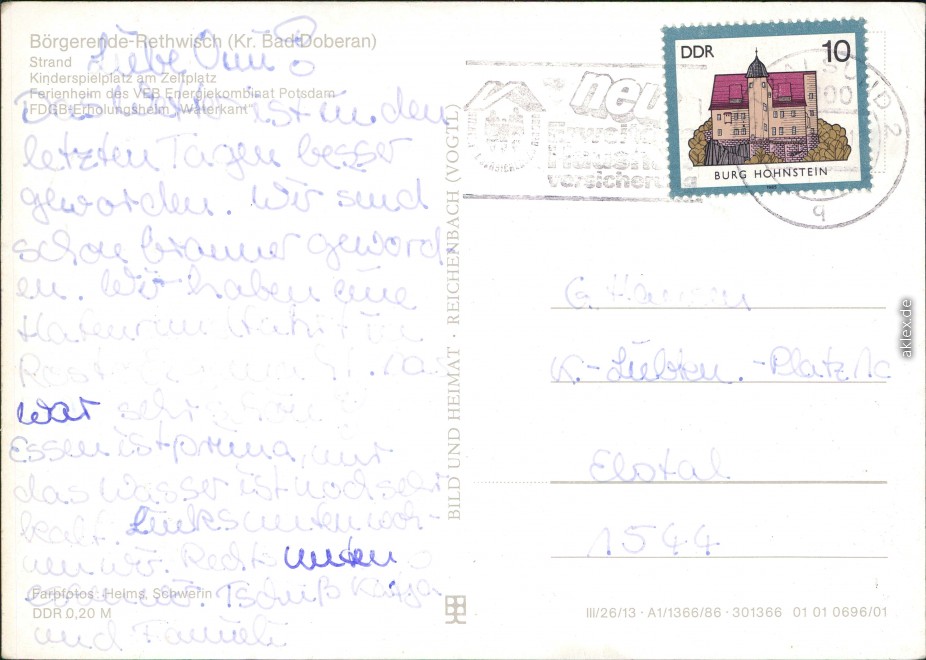 Börgerende-Rethwisch (Kr. Bad Doberan)
Strand
Kinderspielplatz am Zeltplatz
Ferienheim des VEB Energiekombinat Potsdam
FDGB-Erholungsheim "Waterkant"
Liebe Omi!
ist in den
letzten Tagen besser
geworden. Wir sind
schon brauner geword-
en. Wir haben eine
in
war sehr schön
Essen ist prima, nur
das Wasser ist noch sehr
kalt. Links unten woh-
nen wir. Rechts unten
essen wir. Tschüß Katja
und Familie
Farbfotos: Helms, Schwerin
DDR 0,20 M
BILD UND HEIMAT · REICHENBACH (VOGTL)
neu
versicherung
DDR 10
BURG HOHNSTEIN
2
q
G.
K.- -Platz 1c
1544
III/26/13 · A1/1366/86 · 301366 01 01 0696/01
aklex.de